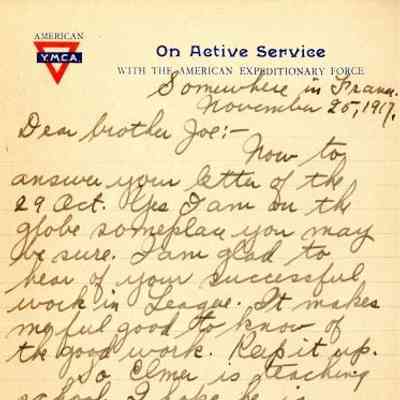 AMERICAN
Y.M.C.A.
On Active Service
WITH THE AMERICAN EXPEDITIONARY FORCE
Somewhere in France.
November 25, 1917.
Dear brother Joe:-
Now to
answer your letter of the
29 Oct. Yes I am on the
globe someplace you may
be sure. I am glad to
hear of your successful
work in League. It makes
me ful good to know of
the good work. Keep it up.
So Elmer is teaching
school I hope he is